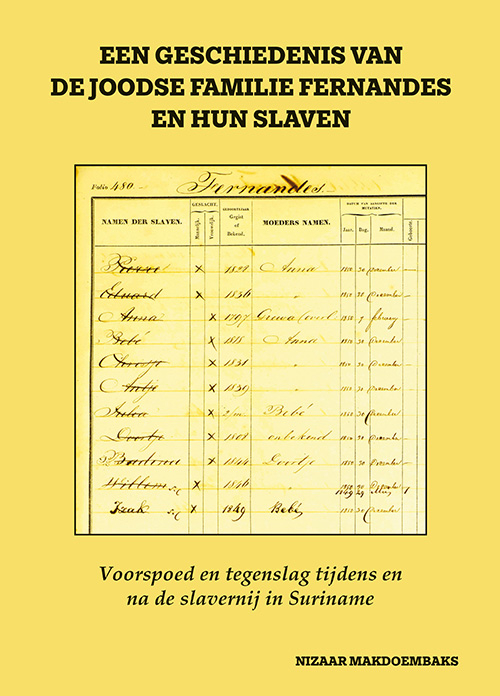 EEN GESCHIEDENIS VAN
DE JOODSE FAMILIE FERNANDES
EN HUN SLAVEN
Folio 480. Fernandes.
NAMEN DER SLAVEN. GESLACHT. Mannelijk. Vrouwelijk. GEBOORTEJAAR Gegist of Bekend. MOEDERS NAMEN. DATUM VAN AANGIFTE DER MUTATIEN. Jaar. Dag. Maand. Geboorte.
Pierro X 1829 Anna 1850 30 December
Eduard X 1836 " 1850 30 December
Anna X 1797 9 February
Bebé X 1818 Anna 1850 30 December
X 1831 " 1850 30 December
Antje X 1839 " 1850 30 December
X Bebé 1850 30 December
Dortje X 1808 onbekend 1850 30 December
X 1844 Dortje 1850 30 December
Willem X 1846 "
X 1849 Bebé 1850 30 December
Voorspoed en tegenslag tijdens en
na de slavernij in Suriname
NIZAAR MAKDOEMBAKS